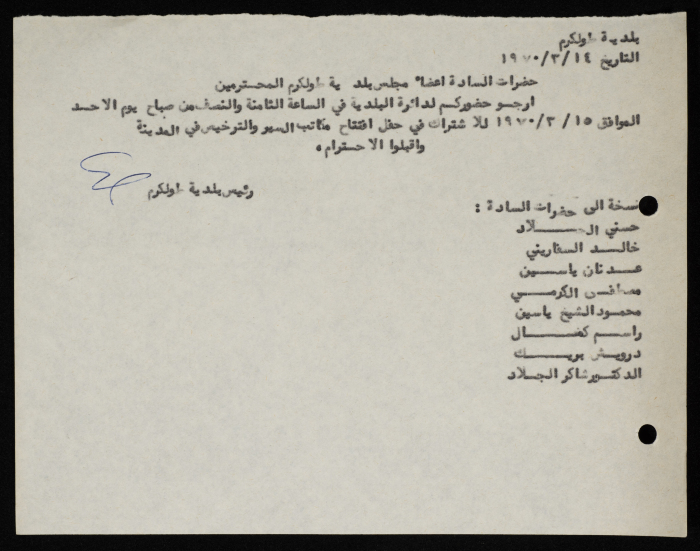 بلدية طولكرم
التاريخ ١٩٧٠/٣/١٤
حضرات السادة اعضاء مجلس بلدية طولكرم المحترمين
ارجو حضوركم لدائرة البلدية في الساعة الثامنة والنصف من صباح يوم الاحد
الموافق ١٩٧٠/٣/١٥ للاشتراك في حفل افتتاح مكاتب السير والترخيص في المدينة
واقبلوا الاحترام،
رئيس بلدية طولكرم
نسخة الى حضرات السادة :
حسني الجـــــلاد
خالـــد السفاريني
عـــدنان ياســـين
مصطفـى الكرمـــي
محمود الشيخ ياسين
راســم كمـــــال
درويـــش بريـــك
الدكتـور شاكر الجـلاد